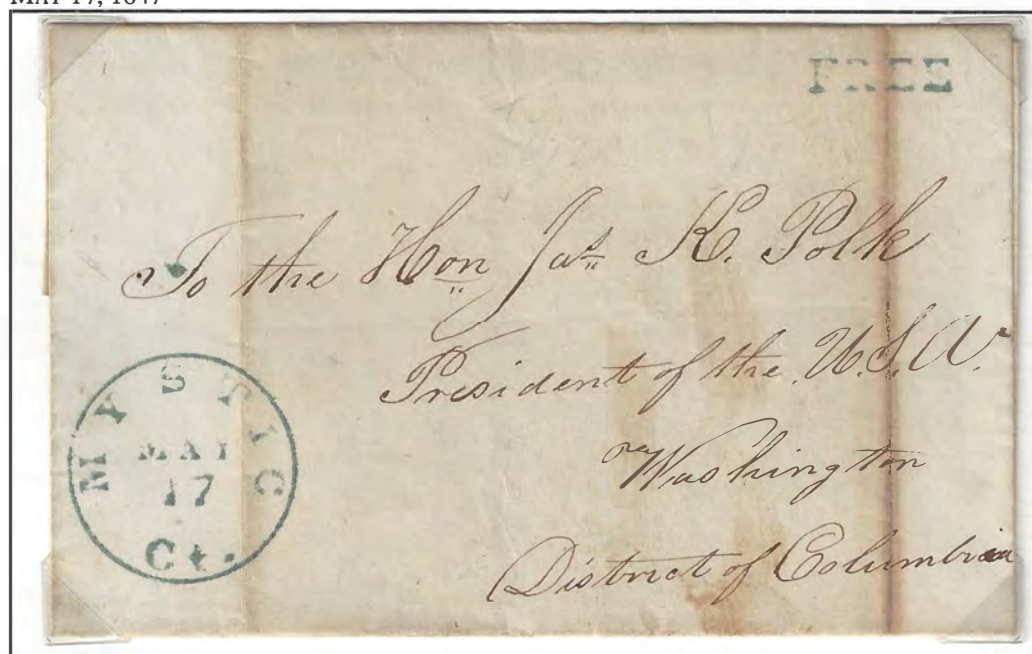 MAY 17, 1847
FREE
To the Hon Jas K. Polk
President of the U.S.A.
Washington
District of Columbia
MYSTIC
MAY
17
Ct.